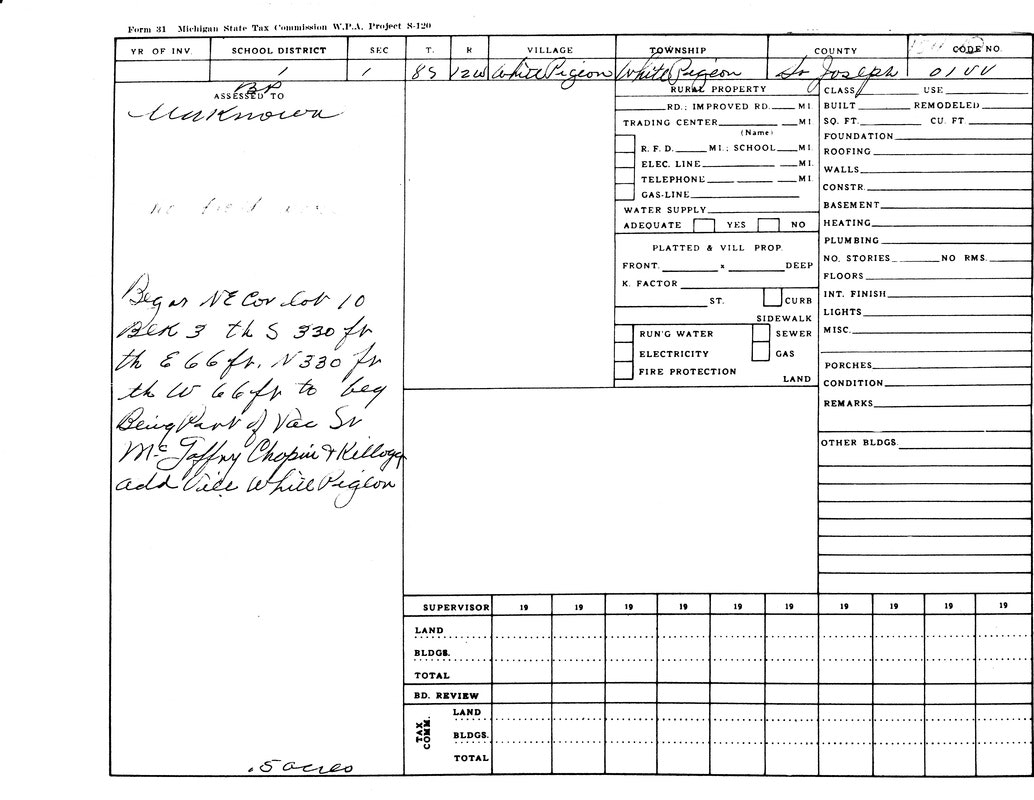 Form 31 Michigan State Tax Commission W.P.A. Project S-120
YR OF INV. SCHOOL DISTRICT SEC T. R VILLAGE TOWNSHIP COUNTY CODE NO.
1 1 8S 12W White Pigeon White Pigeon St Joseph
ASSESSED TO
Unknown
Beg at NE Cor lot 10
Blk 3 th S 330 ft
th E 66 ft. N 330 ft
th W 66 ft to beg
Being Part of Vac St
Chapin & Kellogg
add Vill White Pigeon
.5 acres
RURAL PROPERTY
RD.; IMPROVED RD. MI.
TRADING CENTER MI.
(Name)
R. F. D. MI.; SCHOOL MI.
ELEC. LINE MI.
TELEPHONE MI.
GAS-LINE
WATER SUPPLY
ADEQUATE YES NO
PLATTED & VILL PROP.
FRONT. x DEEP
K. FACTOR
ST. CURB
SIDEWALK
RUN'G WATER SEWER
ELECTRICITY GAS
FIRE PROTECTION
LAND
CLASS USE
BUILT REMODELED
SQ. FT. CU. FT
FOUNDATION
ROOFING
WALLS
CONSTR.
BASEMENT
HEATING
PLUMBING
NO. STORIES NO RMS.
FLOORS
INT. FINISH
LIGHTS
MISC.
PORCHES
CONDITION
REMARKS
OTHER BLDGS.
SUPERVISOR 19 19 19 19 19 19 19 19 19 19
LAND
BLDGS.
TOTAL
BD. REVIEW
TAX COMM.
LAND
BLDGS.
TOTAL